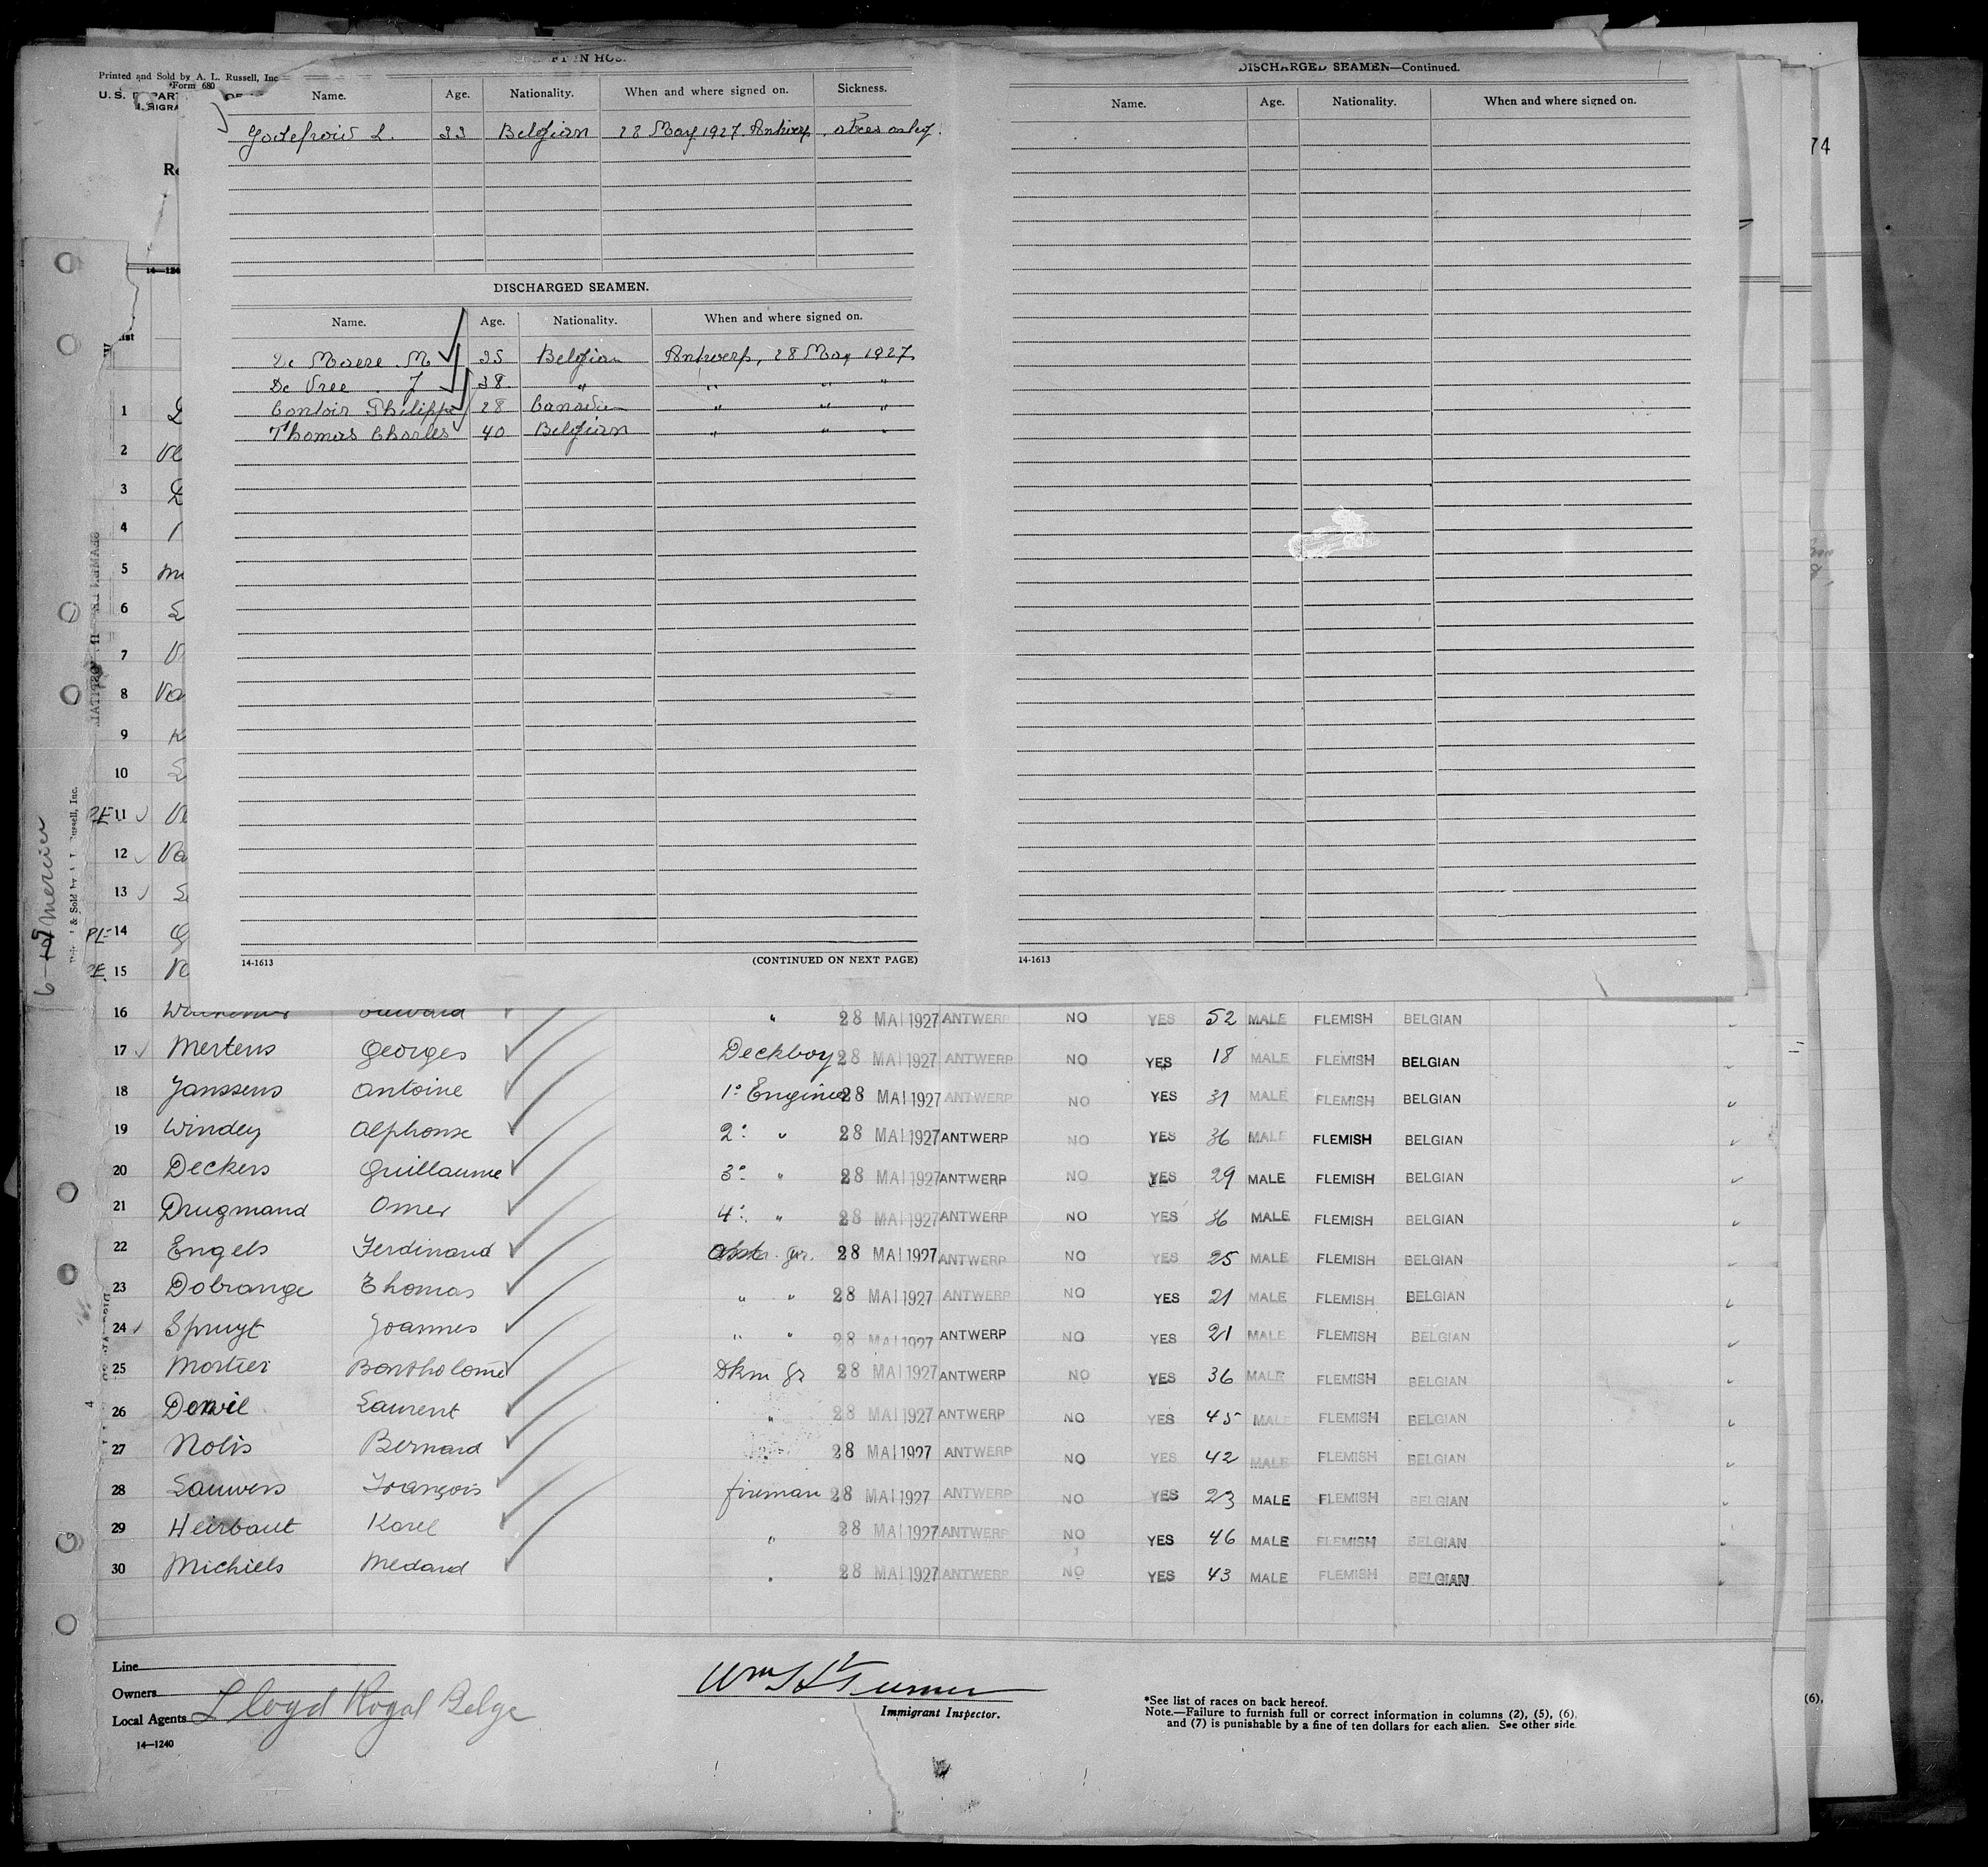 Printed and Sold by A. L. Russell, Inc
Form 680
U. S.
Name. Age. Nationality. When and where signed on. Sickness.
Godefroid L. 33 Belgian 28 May 1927. Antwerp
DISCHARGED SEAMEN.
Name. Age. Nationality. When and where signed on.
De Maere M 35 Belgian Antwerp, 28 May 1927
De Vree . J 38 " " " "
Contoir Philippe 28 Canadian " " "
Thomas Charles 40 Belgian " " "
14-1613 (CONTINUED ON NEXT PAGE)
DISCHARGED SEAMEN—Continued.
Name. Age. Nationality. When and where signed on.
14-1613
74
1
2 Ve
3
4
5
6
7 V
8 Va
9
10
11 Ve
12 Va
13
PE 14
15 Ve
6 Mercier
16 " 28 MAI 1927 ANTWERP NO YES 52 MALE FLEMISH BELGIAN
17 Mertens Georges Deckboy 28 MAI 1927 ANTWERP NO YES 18 MALE FLEMISH BELGIAN
18 Janssens Antoine 1° Engineer 28 MAI 1927 ANTWERP NO YES 31 MALE FLEMISH BELGIAN
19 Windey Alphonse 2° " 28 MAI 1927 ANTWERP NO YES 36 MALE FLEMISH BELGIAN
20 Deckers Guillaume 3° " 28 MAI 1927 ANTWERP NO YES 29 MALE FLEMISH BELGIAN
21 Drugmand Omer 4° " 28 MAI 1927 ANTWERP NO YES 36 MALE FLEMISH BELGIAN
22 Engels Ferdinand 28 MAI 1927 ANTWERP NO YES 25 MALE FLEMISH BELGIAN
23 Dobrange Thomas " " 28 MAI 1927 ANTWERP NO YES 21 MALE FLEMISH BELGIAN
24 Spruyt Joannes " " 28 MAI 1927 ANTWERP NO YES 21 MALE FLEMISH BELGIAN
25 Mortier Bartholomé Dkm gr 28 MAI 1927 ANTWERP NO YES 36 MALE FLEMISH BELGIAN
26 Laurent " 28 MAI 1927 ANTWERP NO YES 45 MALE FLEMISH BELGIAN
27 Nolis Bernard 28 MAI 1927 ANTWERP NO YES 42 MALE FLEMISH BELGIAN
28 Lauwers François fireman 28 MAI 1927 ANTWERP NO YES 23 MALE FLEMISH BELGIAN
29 Heirbaut Karel " 28 MAI 1927 ANTWERP NO YES 46 MALE FLEMISH BELGIAN
30 Michiels Medard " 28 MAI 1927 ANTWERP NO YES 43 MALE FLEMISH BELGIAN
Line
Owners
Local Agents Lloyd Royal Belge
14—1240
Immigrant Inspector.
*See list of races on back hereof.
Note.—Failure to furnish full or correct information in columns (2), (5), (6),
and (7) is punishable by a fine of ten dollars for each alien. See other side
(6),